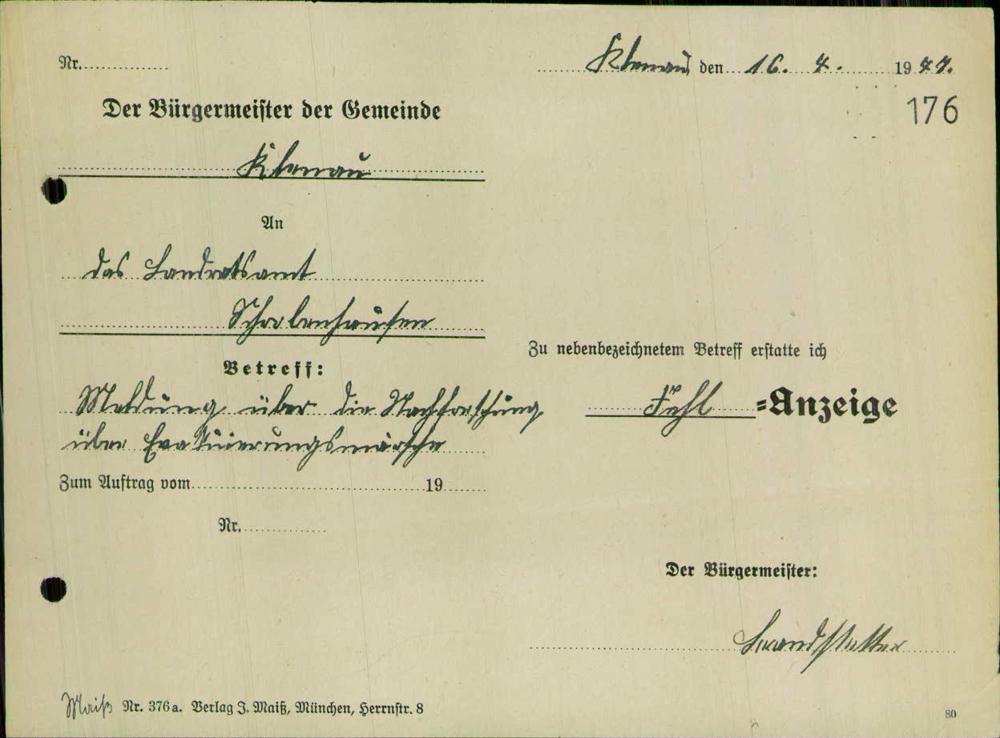 Nr.
Klenau, den 16. 4. 1947.
176
Der Bürgermeister der Gemeinde
Klenau
An
das Landratsamt
Schrobenhausen
Betreff:
Meldung über die Nachforschung
über Evakuierungsmärsche
Zum Auftrag vom 19
Nr.
Zu nebenbezeichnetem Betreff erstatte ich
Fehl =Anzeige
Der Bürgermeister:
Brandstetter
Maiß Nr. 376a. Verlag J. Maiß, München, Herrnstr. 8
80